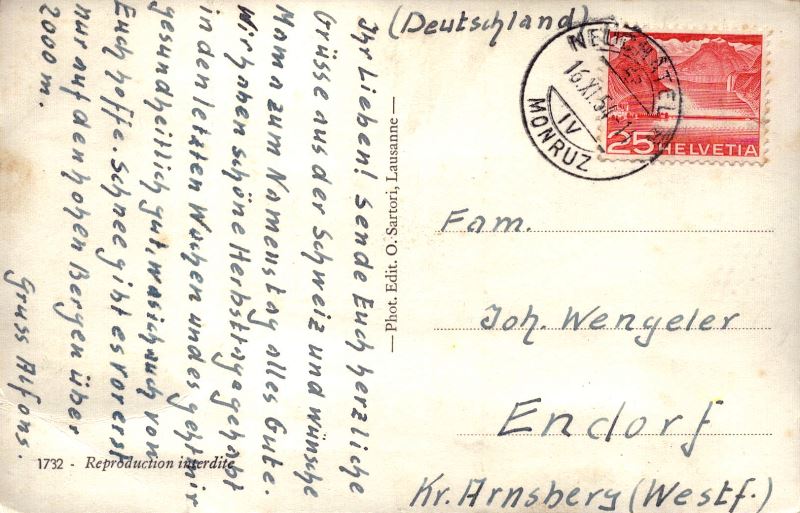 Ihr Lieben! Sende Euch herzliche
Grüsse aus der Schweiz und wünsche
Mama zum Namenstag alles Gute.
Wir haben schöne Herbsttage gehabt
in den letzten Wochen und es geht mir
gesundheitlich gut, was ich auch von
Euch hoffe. Schnee gibt es vorerst
nur auf den hohen Bergen über
2000 m.
Gruss Alfons.
1732 - Reproduction interdite
— Phot. Edit. O. Sartori, Lausanne —
(Deutschland)
NEUCHÂTEL
16.XI.54
IV
MONRUZ
25 HELVETIA
Fam.
Joh. Wengeler
Endorf
Kr. Arnsberg (Westf.)